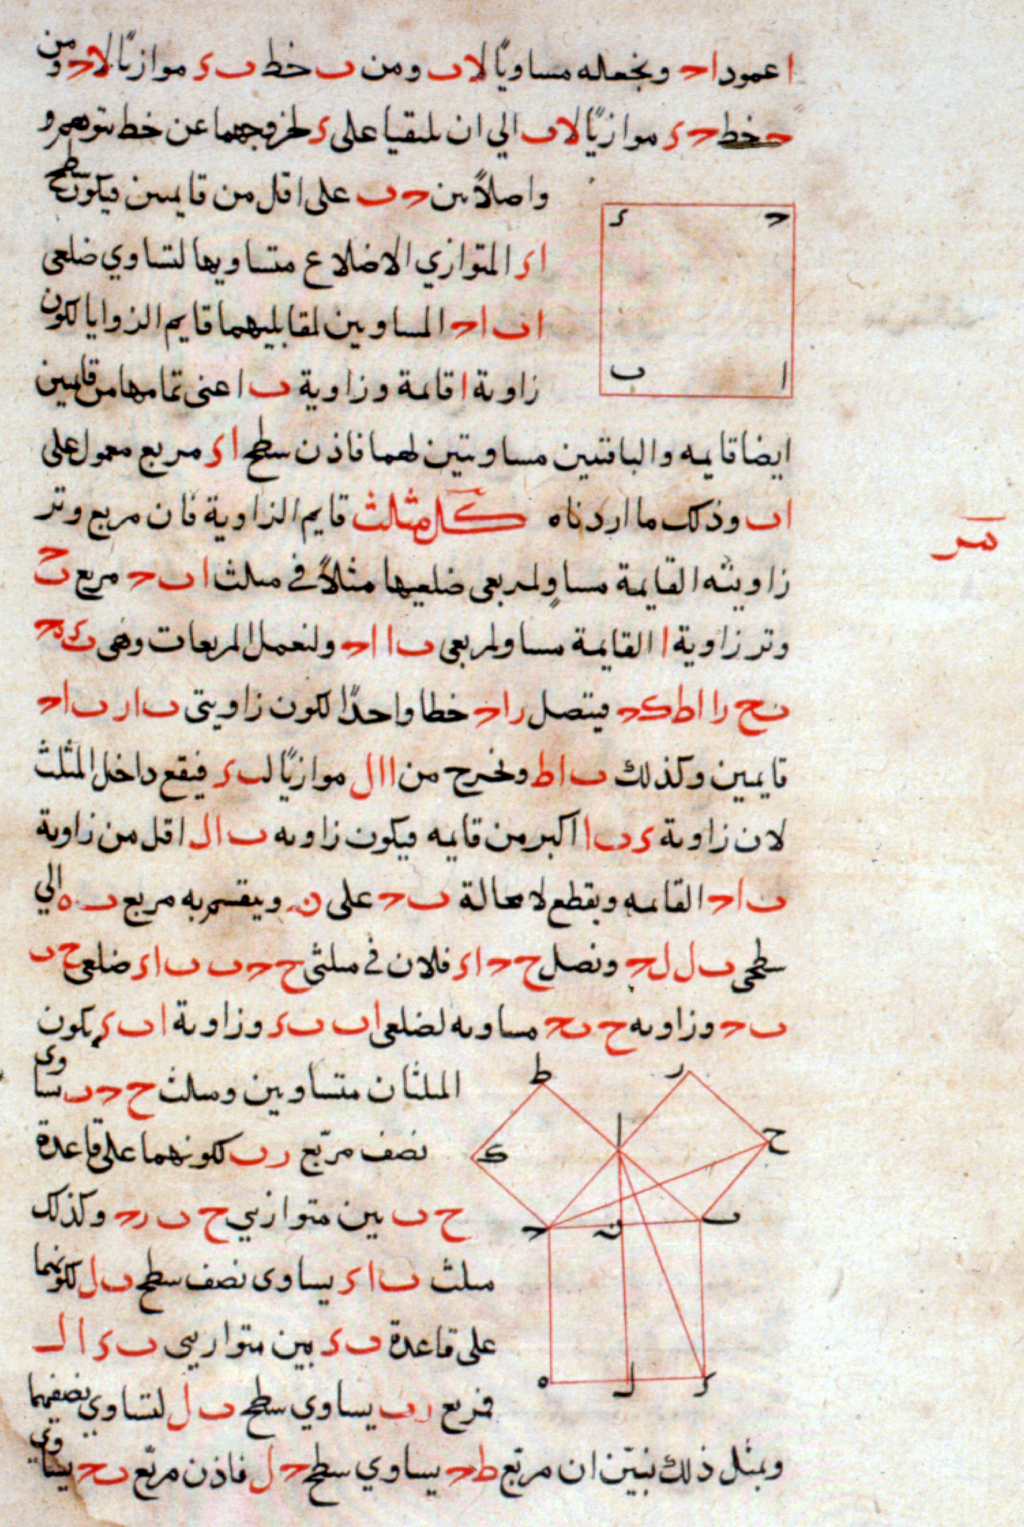 ا عمود اح ونجعله مساويًا لاب ومن ب خط بء موازيًا لاح ومن
ح خط حء موازيًا لاب الي ان يلتقيا على ء لخروجهما عن خط يتوهم و
واصلاً بين حب على اقل من قايمتين فيكون سطح
اء المتوازي الاضلاع متساويها لتساوي ضلعى
اب اح المساويين لمقابليهما قايم الزوايا لكون
زاوية ا قائمة وزاوية ب اعنى تمامها من قايمتين
ايضا قايمه والباقيتين مساويتين لهما فاذن سطح اء مربع معمول على
اب وذلك ما اردناه كل مثلث قايم الزاوية فان مربع وتر
زاويته القايمة مساوٍ لمربعى ضلعيها مثلاً فى مثلث ابح مربع بح
وتر زاوية ا القايمة مساو لمربعى با اح ولنعمل المربعات وهى بء هح
بح را اط كح فيتصل را اح خطا واحدًا لكون زاويتى بار باح
قايمتين وكذلك با اط ونخرج من ا ال موازيًا لبء فيقع داخل المثلث
لان زاوية ءبا اكبر من قايمه فيكون زاويه بال اقل من زاوية
باح القايمه ويقطع لا محالة بح على ن وينقسم به مربع به الي
سطحى بل لح ونصل حح اء فلان فى مثلثى ححب باء ضلعى حب
بح وزاويه حبح مساويه لضلعى اب بء وزاوية ابء يكون
المثلثان متساويين ومثلث ححب يساوى
نصف مربّع رب لكونهما على قاعدة
حب بين متوازيي حب رح وكذلك
مثلث باء يساوى نصف سطح بل لكونهما
على قاعدة بء بين متوازيى بء ال
فمربع رب يساوي سطح بل لتساوي نصفيهما
وبمثل ذلك نبيّن ان مربّع طح يساوي سطح حل فاذن مربّع بح يساوي
ح ء
ا ب
مر
ط ر
ا
ح ك
ب ن ح
ء ل ه